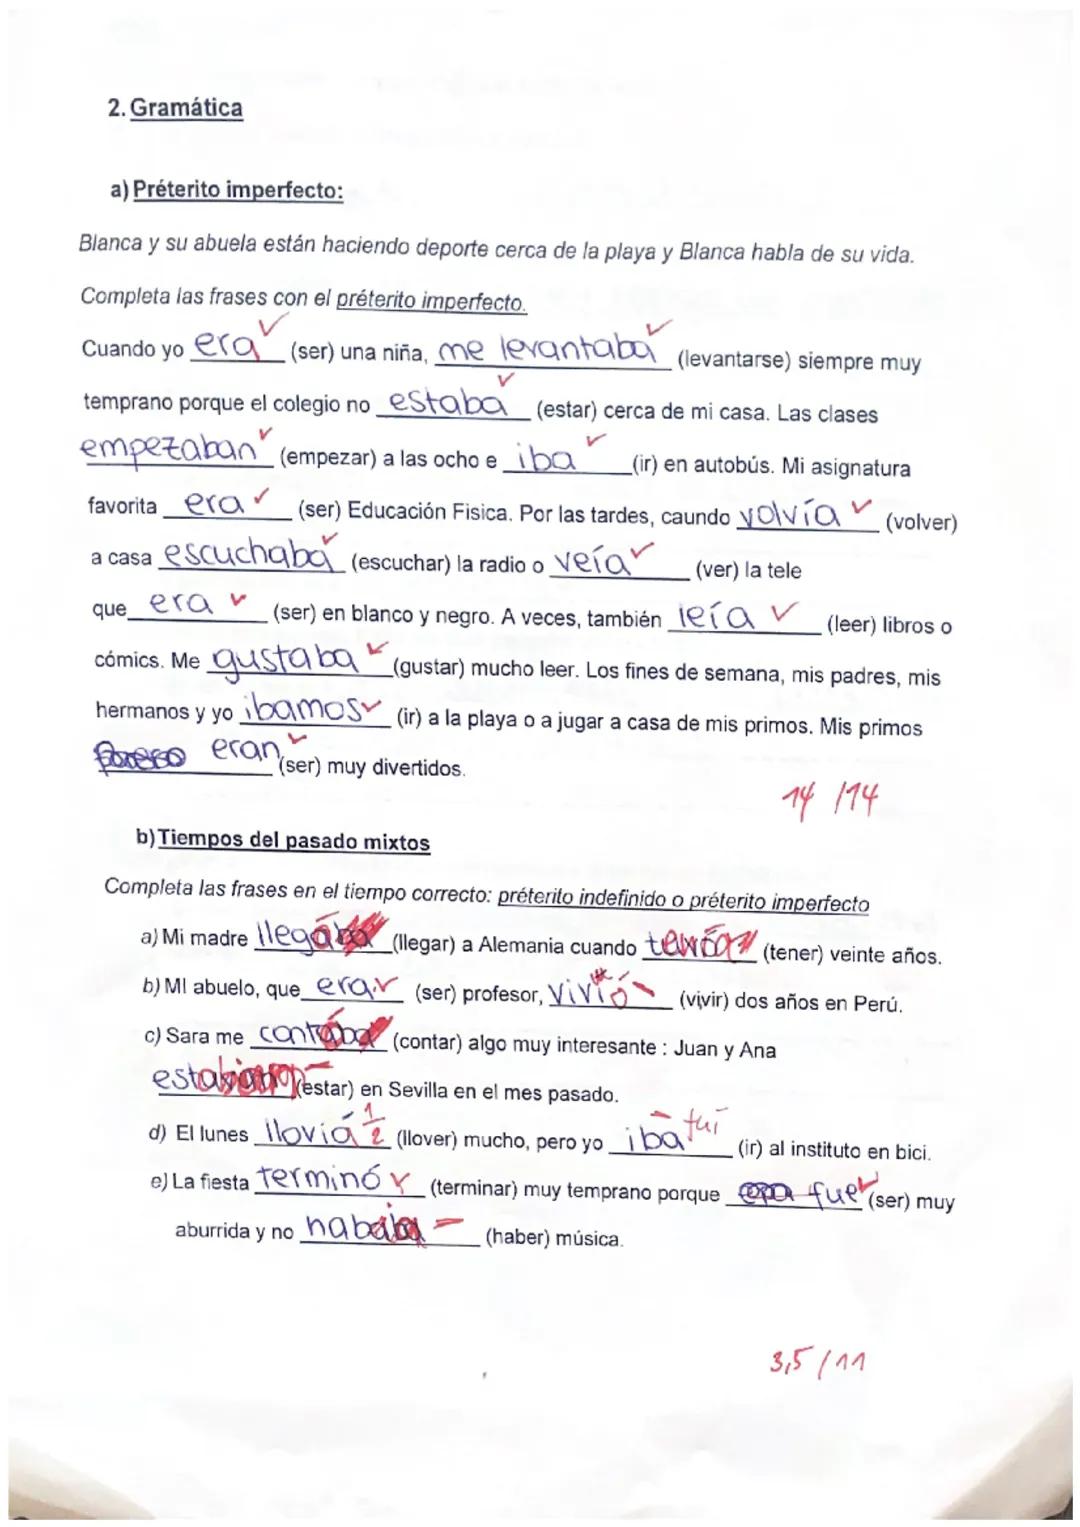 2. Gramática
a) Préterito imperfecto:
Blanca y su abuela están haciendo deporte cerca de la playa y Blanca habla de su vida.
Completa las frases con el préterito imperfecto.
Cuando yo era (ser) una niña, me levantaba (levantarse) siempre muy
temprano porque el colegio no estaba (estar) cerca de mi casa. Las clases
empezaban (empezar) a las ocho e iba (ir) en autobús. Mi asignatura
favorita era (ser) Educación Fisica. Por las tardes, caundo volvía (volver)
a casa escuchaba (escuchar) la radio o veía (ver) la tele
que era (ser) en blanco y negro. A veces, también leía (leer) libros o
cómics. Me gustaba (gustar) mucho leer. Los fines de semana, mis padres, mis
hermanos y yo ibamos (ir) a la playa o a jugar a casa de mis primos. Mis primos
eran (ser) muy divertidos.
14 /14
b) Tiempos del pasado mixtos
Completa las frases en el tiempo correcto: préterito indefinido o préterito imperfecto
a) Mi madre (llegar) a Alemania cuando (tener) veinte años.
b) MI abuelo, que era (ser) profesor, vivió (vivir) dos años en Perú.
c) Sara me (contar) algo muy interesante : Juan y Ana
(estar) en Sevilla en el mes pasado.
d) El lunes llovia 1/2 (llover) mucho, pero yo iba fui (ir) al instituto en bici.
e) La fiesta terminó (terminar) muy temprano porque fue (ser) muy
aburrida y no (haber) música.
3,5 / 11